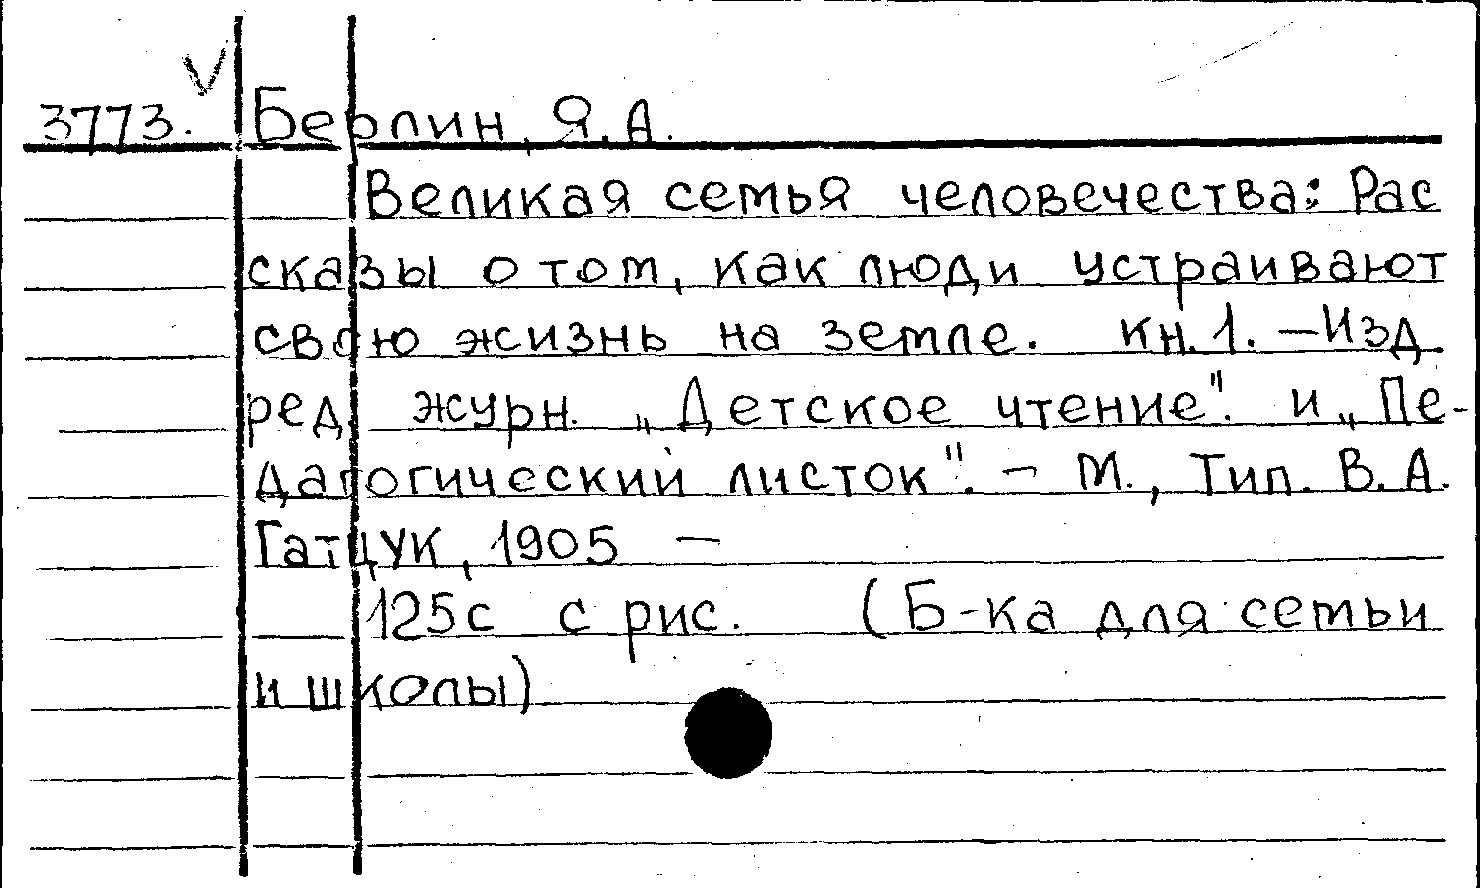 V
3773. Берлин, Я. А.
Великая семья человечества: Рас
сказы о том, как люди устраивают
свою жизнь на земле. кн. 1. – Изд.
ред. журн. „Детское чтение". и „Пе-
дагогический листок". – М., Тип. В. А.
Гатцук, 1905 –
125с с рис. (Б-ка для семьи
и школы)